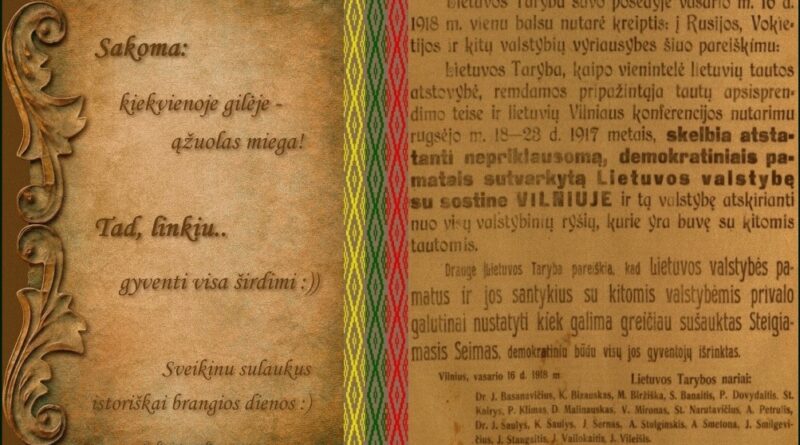 Sakoma:
kiekvienoje gilėje -
ąžuolas miega!
Tad, linkiu..
gyventi visa širdimi :))
Sveikinu sulaukus
istoriškai brangios dienos :)
Lietuvos Taryba savo posėdyje vasario m. 16 d.
1918 m. vienu balsu nutarė kreiptis: į Rusijos, Vokie-
tijos ir kitų valstybių vyriausybes šiuo pareiškimu:
Lietuvos Taryba, kaipo vienintelė lietuvių tautos
atstovybė, remdamos pripažintąja tautų apsispren-
dimo teise ir lietuvių Vilniaus konferencijos nutarimu
rugsėjo m. 18—23 d. 1917 metais, skelbia atsta-
tanti nepriklausomą, demokratiniais pa-
matais sutvarkytą Lietuvos valstybę
su sostine VILNIUJE ir tą valstybę atskirianti
nuo visų valstybinių ryšių, kurie yra buvę su kitomis
tautomis.
Drauge Lietuvos Taryba pareiškia, kad Lietuvos valstybės pa-
matus ir jos santykius su kitomis valstybėmis privalo
galutinai nustatyti kiek galima greičiau sušauktas Steigia-
masis Seimas, demokratiniu būdu visų jos gyventojų išrinktas.
Vilnius, vasario 16 d. 1918 m
Lietuvos Tarybos nariai:
Dr. J. Basanavičius, K. Bizauskas, M. Biržiška, S. Banaitis, P. Dovydaitis. St.
Kairys, P. Klimas, D. Malinauskas, V. Mironas, St. Narutavičius, A. Petrulis,
Dr. J. Šaulys, K. Šaulys, J. Šernas, A. Stulginskis, A Smetona, J. Smilgevi-
čius, J. Staugaitis, J. Vailokaitis, J. Vileišis.